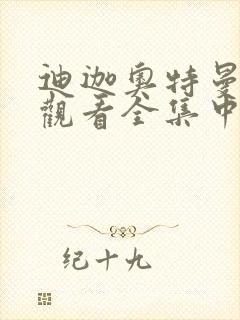 迪迦奥特曼
觀看全集中
纪十九